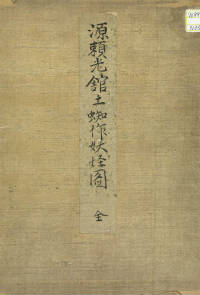 源頼光館土蜘作妖怪圖
全